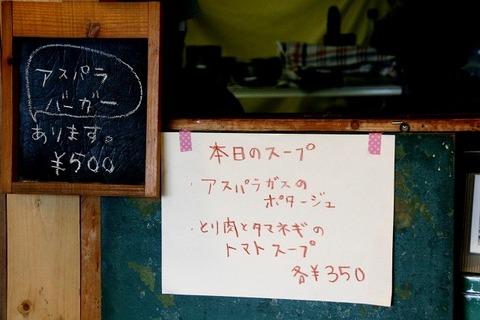 アスパラ
バーガー
あります。
¥500
本日のスープ
・アスパラガスの
ポタージュ
・とり肉とタマネギの
トマトスープ
各¥350